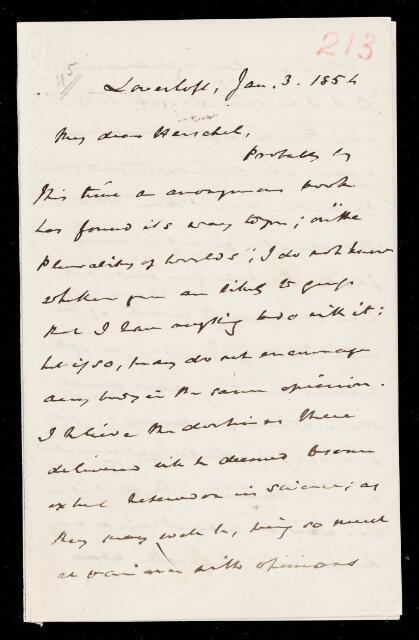 213
115
Lowestoft, Jan. 3. 1854
My dear Herschel,
Probably by
this time an anonymous book
has found its way to you; "on the
Plurality of Worlds"; I do not know
whether you are likely to guess
that I have anything to do with it:
but if so, pray do not encourage
any body in the same opinion.
I believe the doctrines there
delivered will be deemed to some
extent heterodox in science; as
they may well be, being so much
at variance with opinions